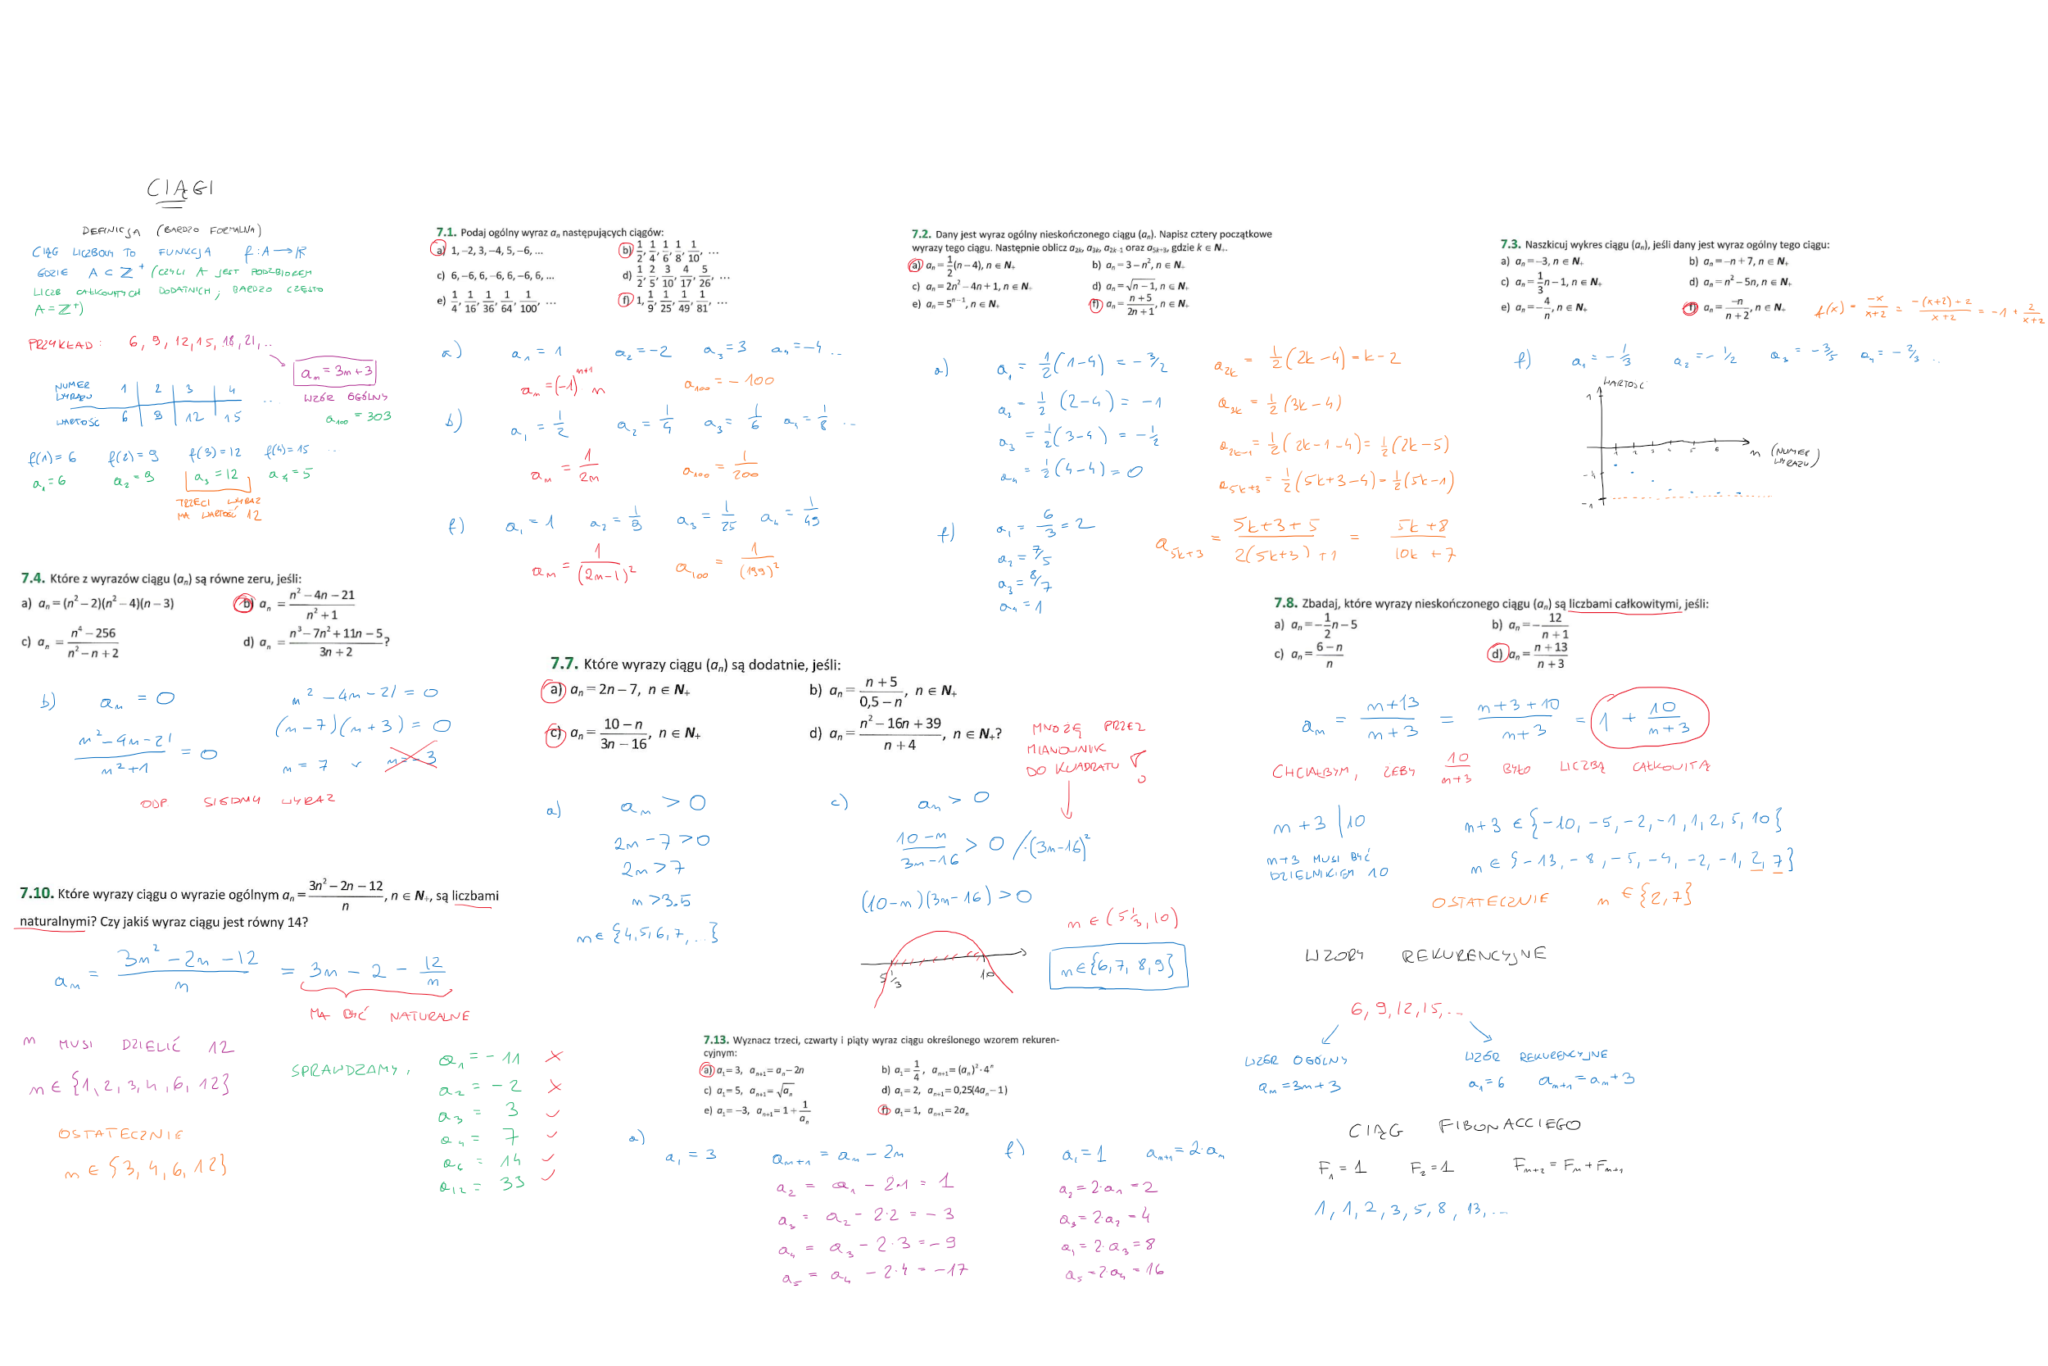 CIĄGI
DEFINICJA (BARDZO FORMALNA)
CIĄG LICZBOWY TO FUNKCJA f: A → ℝ
GDZIE A ⊂ ℤ⁺ (CZYLI A JEST PODZBIOREM
LICZB CAŁKOWITYCH DODATNICH, BARDZO CZĘSTO
A = ℤ⁺)
PRZYKŁAD: 6, 9, 12, 15, 18, 21, ..
aₙ = 3n+3
WZÓR OGÓLNY
a₁₀₀ = 303
NUMER WYRAZU 1 2 3 4 ..
WARTOŚĆ 6 9 12 15
f(1) = 6 f(2) = 9 f(3) = 12 f(4) = 15 ..
a₁ = 6 a₂ = 9 a₃ = 12, a₄ = 5
TRZECI WYRAZ
MA WARTOŚĆ 12
7.1. Podaj ogólny wyraz aₙ następujących ciągów:
a) 1, –2, 3, –4, 5, –6, ... b) 1/2, 1/4, 1/6, 1/8, 1/10, ...
c) 6, –6, 6, –6, 6, –6, 6, ... d) 1/2, 2/5, 3/10, 4/17, 5/26, ...
e) 1/4, 1/16, 1/36, 1/64, 1/100, ... f) 1, 1/9, 1/25, 1/49, 1/81, ...
a) a₁ = 1 a₂ = -2 a₃ = 3 a₄ = -4 ..
aₙ = (-1)ⁿ⁺¹ n a₁₀₀ = -100
b) a₁ = 1/2 a₂ = 1/4 a₃ = 1/6 a₄ = 1/8 ..
aₙ = 1/2n a₁₀₀ = 1/200
f) a₁ = 1 a₂ = 1/9 a₃ = 1/25 a₄ = 1/49
aₙ = 1/(2n-1)² a₁₀₀ = 1/(199)²
7.2. Dany jest wyraz ogólny nieskończonego ciągu (aₙ). Napisz cztery początkowe
wyrazy tego ciągu. Następnie oblicz a₂ₖ, a₃ₖ, a₂ₖ₋₁ oraz a₅ₖ₊₃, gdzie k ∈ N₊.
a) aₙ = 1/2(n – 4), n ∈ N₊ b) aₙ = 3 – n², n ∈ N₊
c) aₙ = 2n² – 4n + 1, n ∈ N₊ d) aₙ = √(n – 1), n ∈ N₊
e) aₙ = 5ⁿ⁻¹, n ∈ N₊ f) aₙ = (n + 5)/(2n + 1), n ∈ N₊
a) a₁ = 1/2(1-4) = -3/2
a₂ = 1/2 (2-4) = -1
a₃ = 1/2(3-4) = -1/2
a₄ = 1/2(4-4) = 0
a₂ₖ = 1/2(2k-4) = k-2
a₃ₖ = 1/2(3k-4)
a₂ₖ₋₁ = 1/2(2k-1-4) = 1/2(2k-5)
a₅ₖ₊₃ = 1/2(5k+3-4) = 1/2(5k-1)
f) a₁ = 6/3 = 2
a₂ = 7/5
a₃ = 8/7
a₄ = 1
a₅ₖ₊₃ = (5k+3+5)/(2(5k+3)+1) = (5k+8)/(10k+7)
7.3. Naszkicuj wykres ciągu (aₙ), jeśli dany jest wyraz ogólny tego ciągu:
a) aₙ = –3, n ∈ N₊ b) aₙ = –n + 7, n ∈ N₊
c) aₙ = 1/3n – 1, n ∈ N₊ d) aₙ = n² – 5n, n ∈ N₊
e) aₙ = –4/n, n ∈ N₊ f) aₙ = –n/(n + 2), n ∈ N₊
f(x) = -x/(x+2) = (-(x+2)+2)/(x+2) = -1 + 2/(x+2)
f) a₁ = -1/3 a₂ = -1/2 a₃ = -3/5 a₄ = -2/3 ..
WARTOŚĆ
1
n (NUMER WYRAZU)
-1
7.4. Które z wyrazów ciągu (aₙ) są równe zeru, jeśli:
a) aₙ = (n² – 2)(n² – 4)(n – 3) b) aₙ = (n² – 4n – 21)/(n² + 1)
c) aₙ = (n⁴ – 256)/(n² – n + 2) d) aₙ = (n³ – 7n² + 11n – 5)/(3n + 2)?
b) aₙ = 0
(n²-4n-21)/(n²+1) = 0
n²-4n-21 = 0
(n-7)(n+3) = 0
n = 7 v n = -3
ODP SIÓDMY WYRAZ
7.7. Które wyrazy ciągu (aₙ) są dodatnie, jeśli:
a) aₙ = 2n – 7, n ∈ N₊ b) aₙ = (n + 5)/(0,5 – n), n ∈ N₊
c) aₙ = (10 – n)/(3n – 16), n ∈ N₊ d) aₙ = (n² – 16n + 39)/(n + 4), n ∈ N₊?
MNOŻĘ PRZEZ
MIANOWNIK
DO KWADRATU !
a) aₙ > 0
2n-7 > 0
2n > 7
n > 3.5
n ∈ {4,5,6,7,..}
c) aₙ > 0
(10-n)/(3n-16) > 0 /·(3n-16)²
(10-n)(3n-16) > 0
5 1/3 10
n ∈ (5 1/3, 10)
n ∈ {6,7, 8,9}
7.8. Zbadaj, które wyrazy nieskończonego ciągu (aₙ) są liczbami całkowitymi, jeśli:
a) aₙ = –1/2n – 5 b) aₙ = –12/(n + 1)
c) aₙ = (6 – n)/n d) aₙ = (n + 13)/(n + 3)
aₙ = (n+13)/(n+3) = (n+3+10)/(n+3) = 1 + 10/(n+3)
CHCIAŁBYM, ŻEBY 10/(n+3) BYŁO LICZBĄ CAŁKOWITĄ
n+3 | 10
n+3 MUSI BYĆ
DZIELNIKIEM 10
n+3 ∈ {-10, -5, -2, -1, 1, 2, 5, 10}
n ∈ {-13, -8, -5, -4, -2, -1, 2, 7}
OSTATECZNIE n ∈ {2,7}
7.10. Które wyrazy ciągu o wyrazie ogólnym aₙ = (3n² – 2n – 12)/n, n ∈ N₊, są liczbami
naturalnymi? Czy jakiś wyraz ciągu jest równy 14?
aₙ = (3n²-2n-12)/n = 3n - 2 - 12/n
MA BYĆ NATURALNE
n MUSI DZIELIĆ 12
n ∈ {1, 2, 3, 4, 6, 12}
OSTATECZNIE
n ∈ {3, 4, 6, 12}
SPRAWDZAMY,
a₁ = -11 ×
a₂ = -2 ×
a₃ = 3 ✓
a₄ = 7 ✓
a₆ = 14 ✓
a₁₂ = 33 ✓
7.13. Wyznacz trzeci, czwarty i piąty wyraz ciągu określonego wzorem rekuren-
cyjnym:
a) a₁ = 3, aₙ₊₁ = aₙ – 2n b) a₁ = 1/4, aₙ₊₁ = (aₙ)² · 4ⁿ
c) a₁ = 5, aₙ₊₁ = √aₙ d) a₁ = 2, aₙ₊₁ = 0,25(4aₙ – 1)
e) a₁ = –3, aₙ₊₁ = 1 + 1/aₙ f) a₁ = 1, aₙ₊₁ = 2aₙ
a) a₁ = 3 aₙ₊₁ = aₙ - 2n
a₂ = a₁ - 2·1 = 1
a₃ = a₂ - 2·2 = -3
a₄ = a₃ - 2·3 = -9
a₅ = a₄ - 2·4 = -17
f) a₁ = 1 aₙ₊₁ = 2·aₙ
a₂ = 2·a₁ = 2
a₃ = 2·a₂ = 4
a₁ = 2·a₃ = 8
a₅ = 2·a₄ = 16
WZORY REKURENCYJNE
6, 9, 12, 15, ...
WZÓR OGÓLNY
aₙ = 3n+3
WZÓR REKURENCYJNE
a₁ = 6 aₙ₊₁ = aₙ+3
CIĄG FIBONACCIEGO
F₁ = 1 F₂ = 1 Fₙ₊₂ = Fₙ + Fₙ₊₁
1, 1, 2, 3, 5, 8, 13, ...